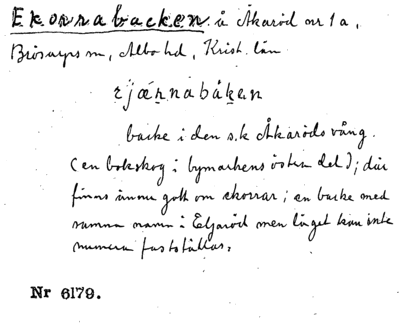 Ekornabacken å Åkaröd nr 1 a,
Brösarps sn, Albo hd, Krist. län
backe i den s.k Åkaröds vång.
(en bokskog i bymarkens östra del); där
finns ännu gott om ekorrar; en backe med
samma namn i Eljaröd men läget kan inte
numera fastställas.
Nr 6179.